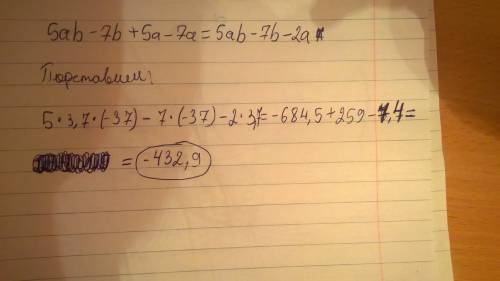 5ab - 7b + 5a - 7a = 5ab - 7b - 2a
Подставим:
5 * 3,7 * (-37) - 7 * (-37) - 2 * 3,7 = -684,5 + 259 - 7,4 =
= -432,9